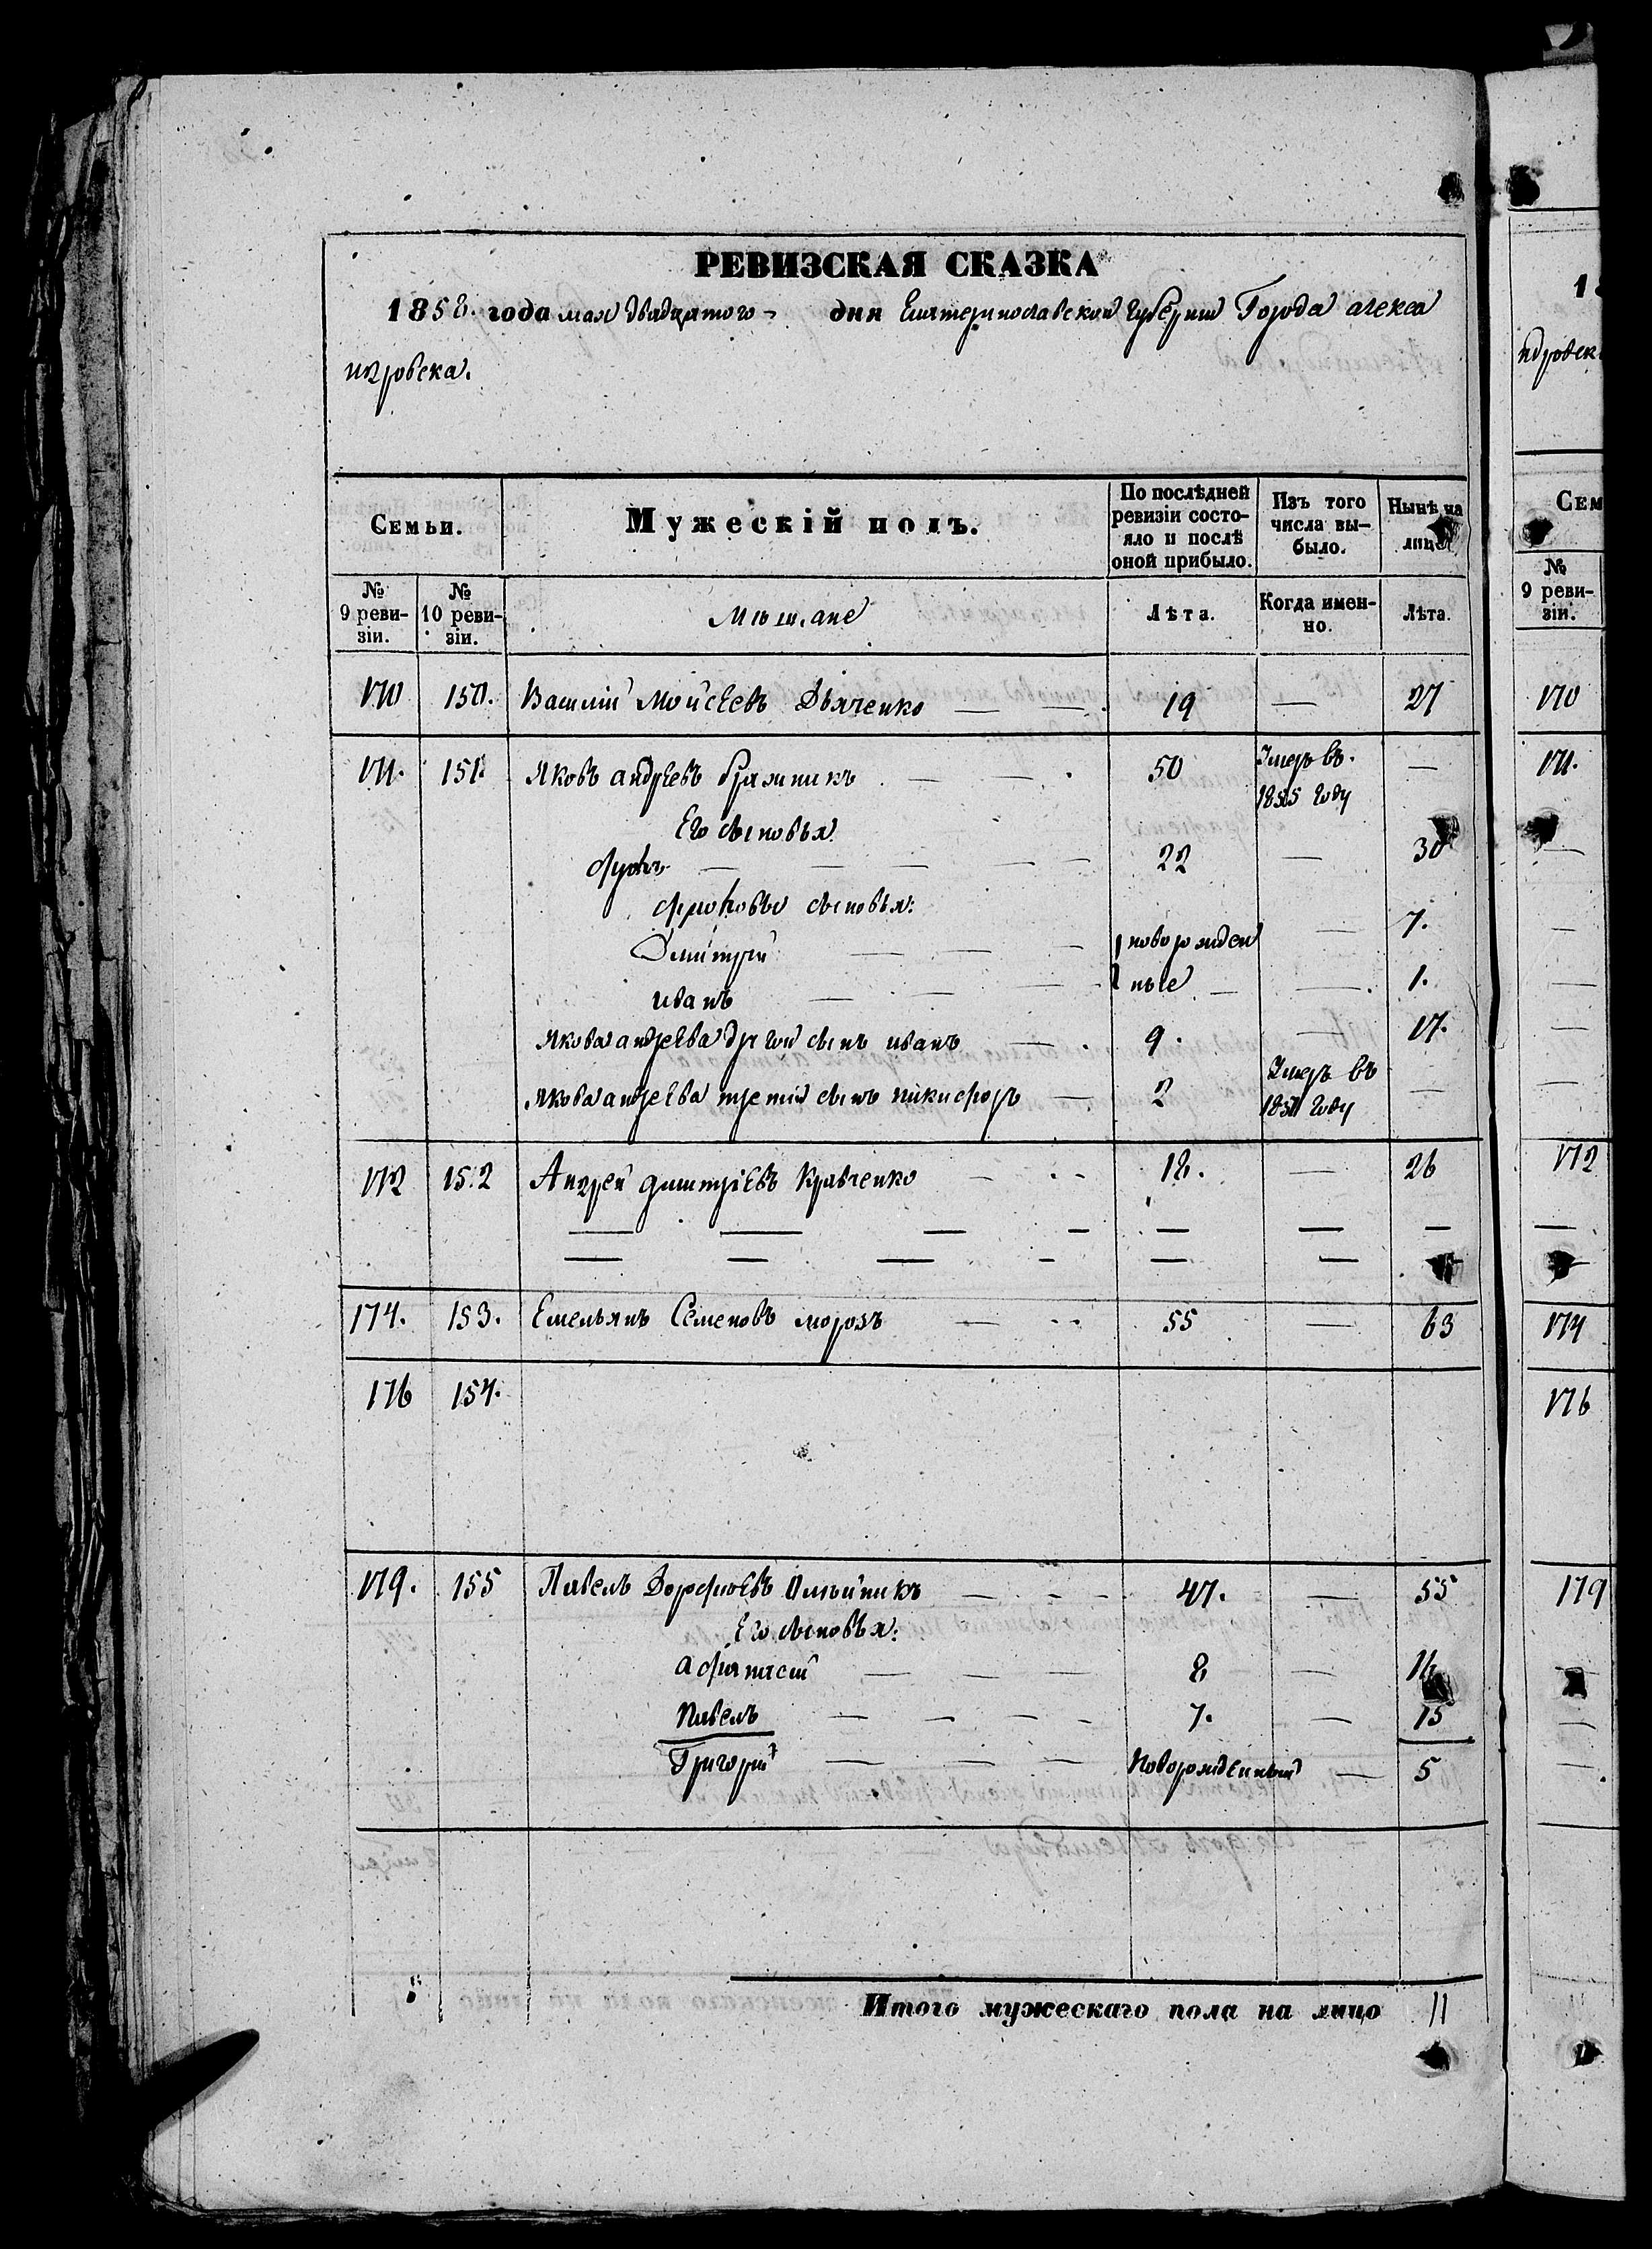 РЕВИЗСКАЯ СКАЗКА
1858. года мая двадцатого дня Екатеринославской Губернии Города алекса
ндровска.
Семьи. Мужескій полъ. По послѣдней ревизіи состояло и послѣ оной прибыло. Изъ того числа выбыло. Нынѣ на лицо
№ 9 ревизіи. № 10 ревизіи. Мѣщане Лѣта. Когда именно. Лѣта.
170 150. Василій Мойсеевъ Дьяченко — — 19 — 27
171. 151. Яковъ андреевъ — — 50 Умеръ въ. —
1855 году
Его сыновья
— — — — — 22 — 30
сыновья:
Дмитрій — — — новорожден — 7.
иванъ — — — — ные — — 1.
Якова андреева другой сынъ иванъ — 9. — 17.
Якова андреева третій сынъ никифоръ — 2 Умеръ въ —
году
172 152 Андрей дмитріевъ Кравченко — 18. — 26
— — — — — — —
— — — — — —
174. 153. Емельянъ Семеновъ морозъ — 55 — 63
176 154.
179. 155 Павелъ Дорофіевъ Олѣйникъ — — — 47. — 55
Его сыновья:
афанасій — — — 8 — 16
Павелъ — — — — 7. — 15
Григорій — — — — Новорожденный — 5
Итого мужескаго пола на лицо 11
1
ндровск
Сем
№ 9 ревизіи.
170
171.
172
174
176
179